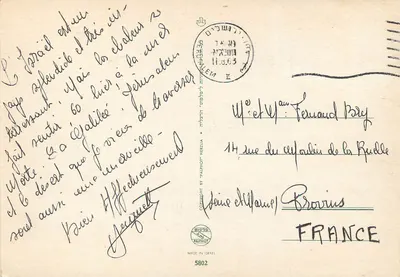 L'Israël est un
pays splendide et très in-
téressant. Mais la chaleur se
fait sentir 50 hier à la mer
Morte. La Galilée, Jérusalem
et le désert que je viens de traverser
sont aussi une merveille-
Bien Affectueusement
Jacquett
Mr et Mme Fernand Bry
14 rue du Moulin de la Ruelle
(Seine et Marne) Provins
FRANCE
PALPHOT
MADE IN ISRAEL
5802